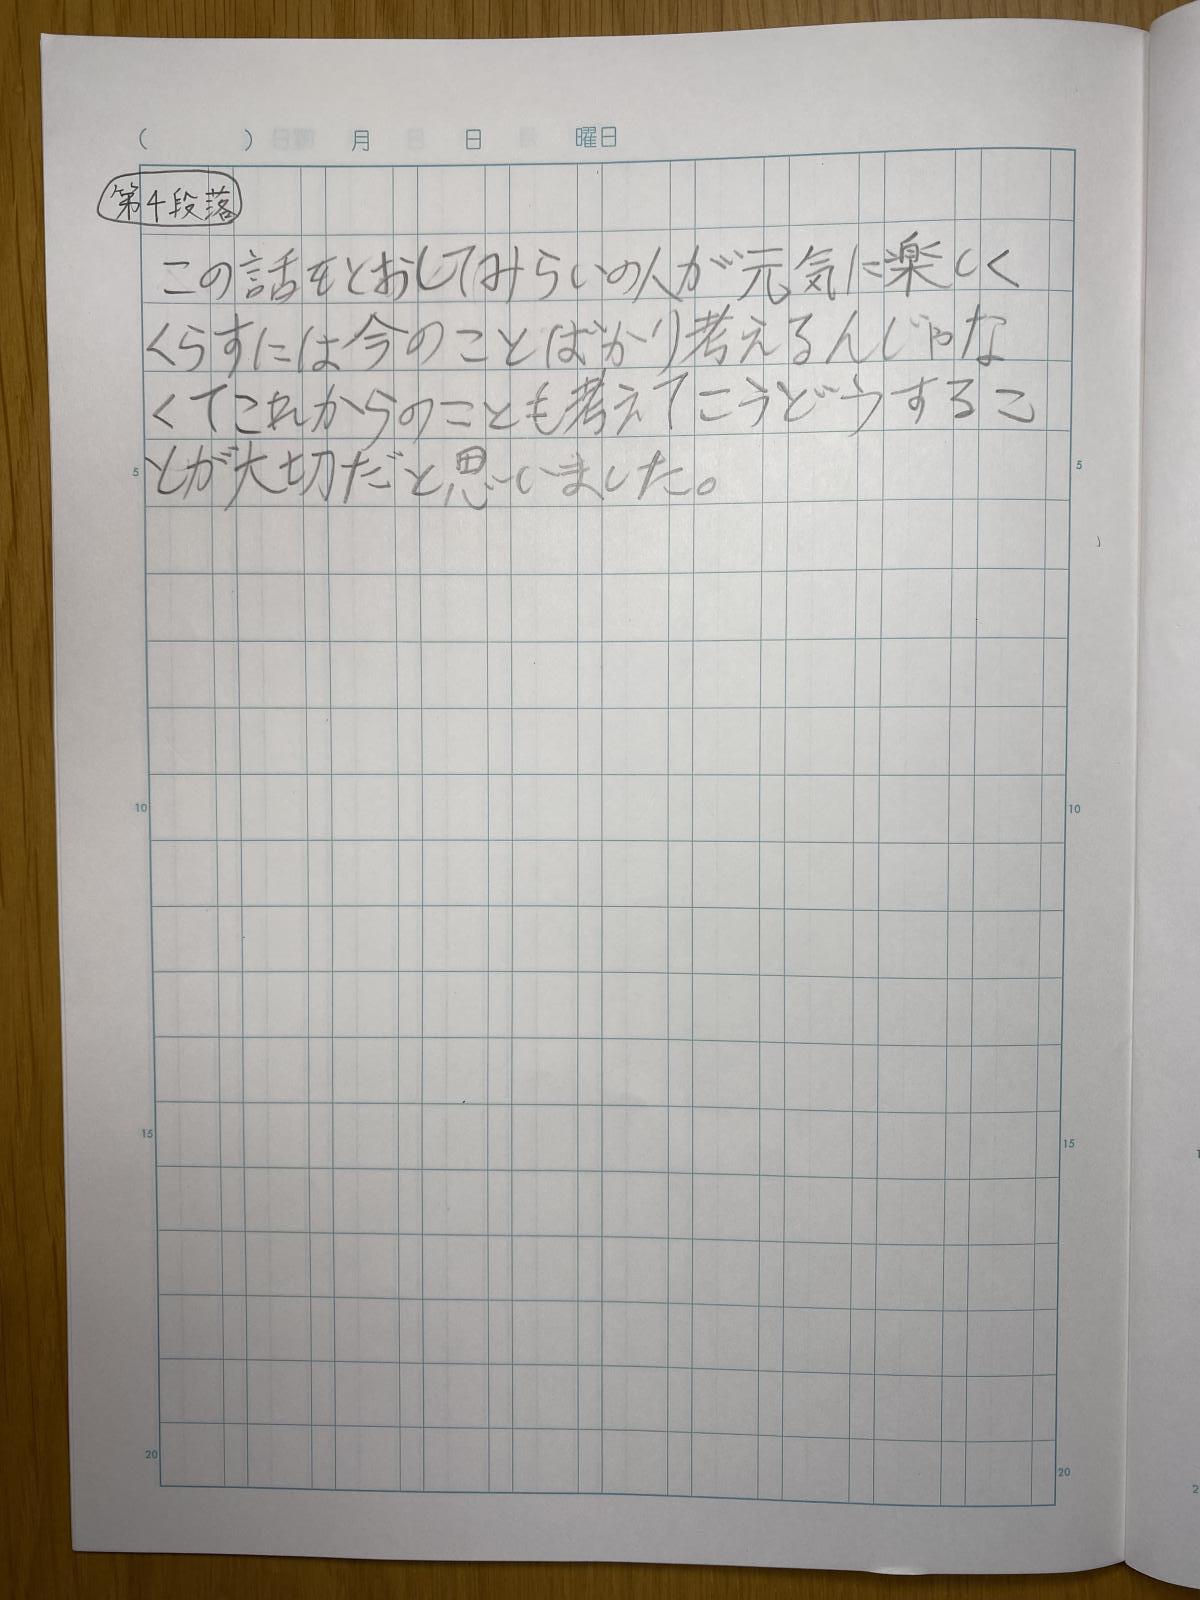 ( ) 月 日 曜日
第4段落
この話をとおしてみらいの人が元気に楽しく
くらすには今のことばかり考えるんじゃな
くてこれからのことも考えてこうどうするこ
とが大切だと思いました。
5 5
10 10
15 15
20 20